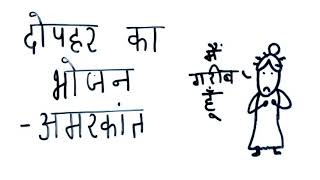 दोपहर का
भोजन
-अमरकांत
मैं
गरीब
हूँ